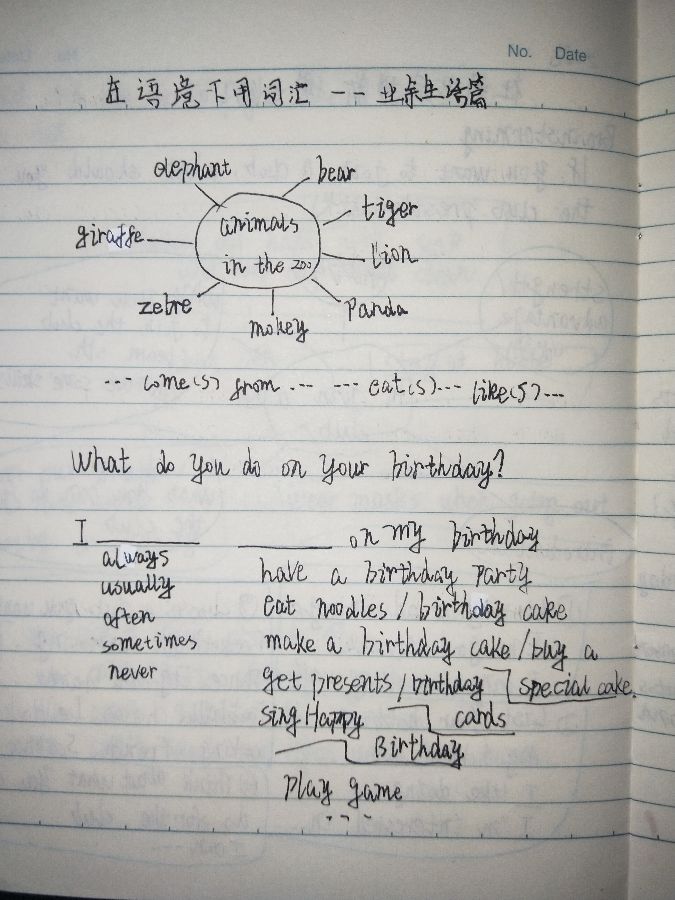 No. Date
在语境下用词汇 -- 业余生活篇
elephant
bear
tiger
giraffe
animals
in the zoo
lion
zebre
mokey
panda
... come(s) from ... ... eat(s)... like(s)...
What do you do on your birthday?
I ______ ______ on my birthday
always
usually
often
sometimes
never
have a birthday party
eat noodles / birthday cake
make a birthday cake / buy a
special cake.
get presents / birthday
cards
sing Happy
Birthday
play game
...